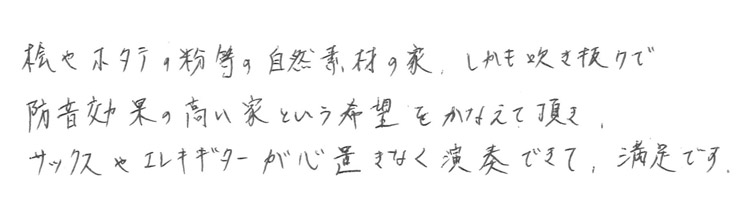 桧やホタテの粉等の自然素材の家、しかも吹き抜けで
防音効果の高い家という希望をかなえて頂き、
サックスやエレキギターが心置きなく演奏できて、満足です。